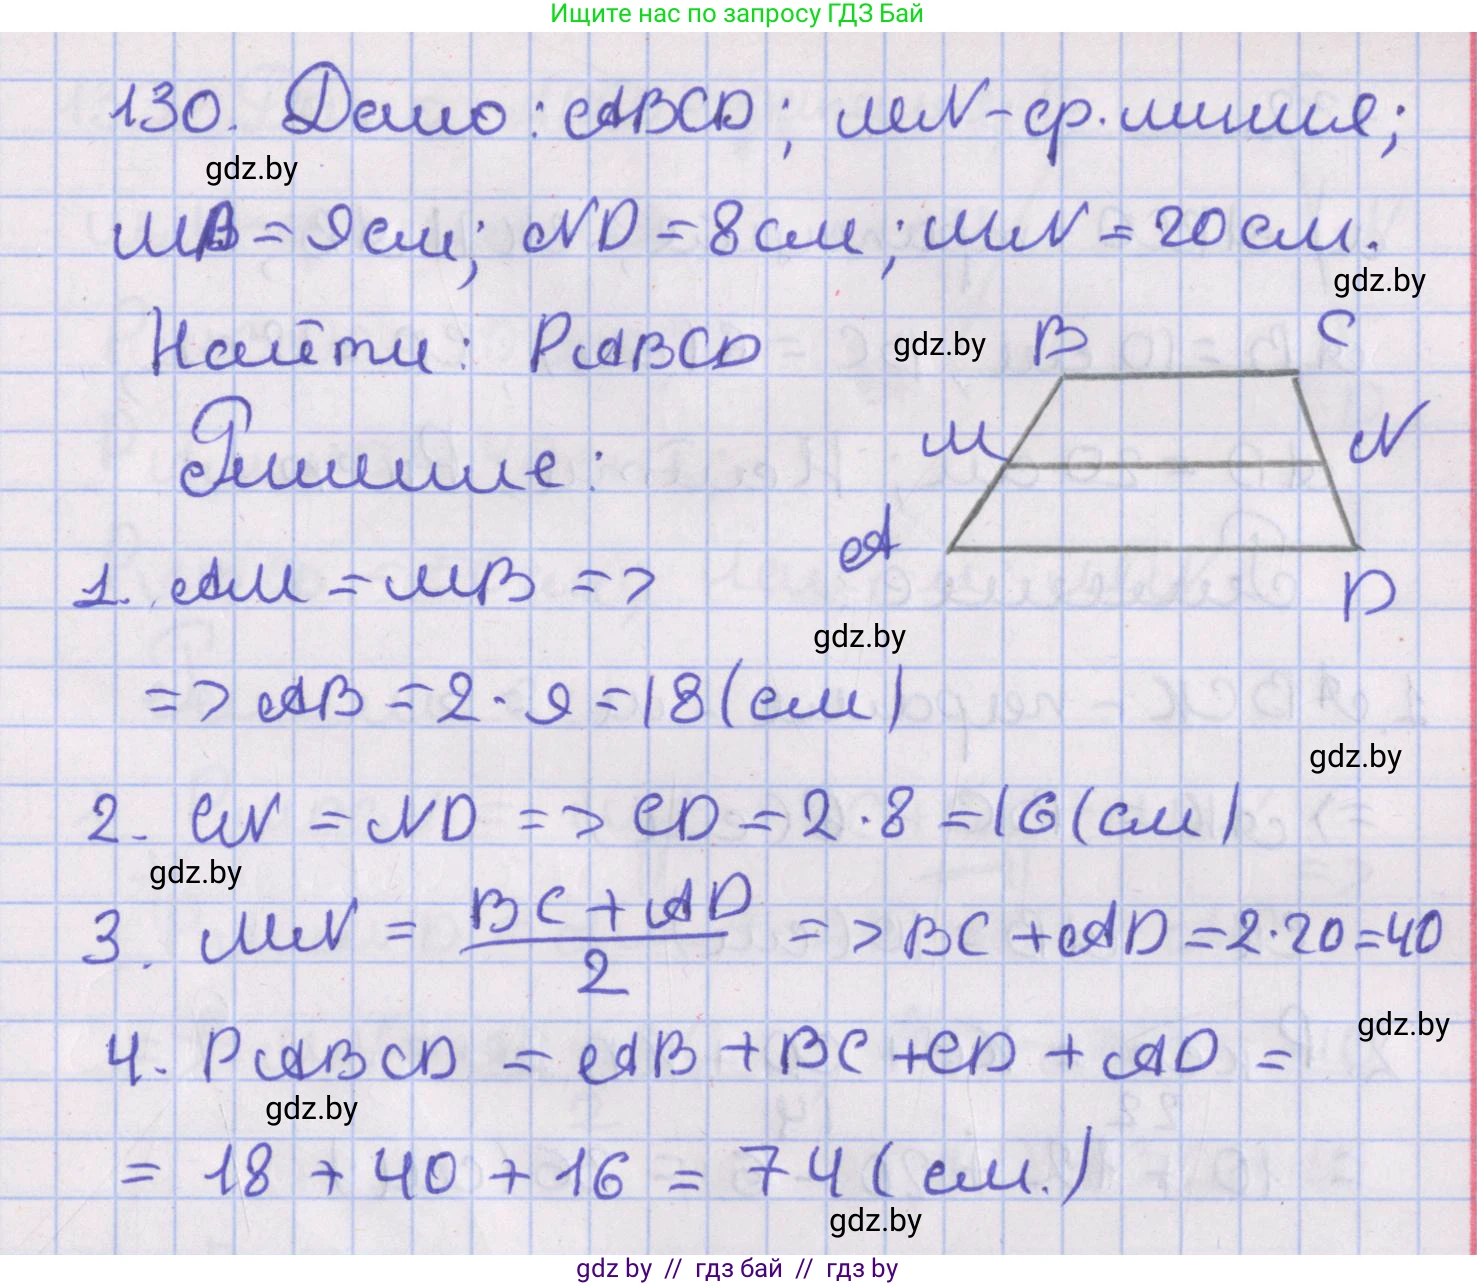 Ищите нас по запросу ГДЗ Бай
130. Дано: ABCD; MN - ср. линия;
gdz.by
MB = 9 см; ND = 8 см; MN = 20 см.
gdz.by
Найти: PABCD
gdz.by
B C
Решение:
M N
A
1. AM = MB =>
D
gdz.by
=> AB = 2 · 9 = 18 (см)
gdz.by
2. CN = ND => CD = 2 · 8 = 16 (см)
gdz.by
3. MN = BC + AD / 2 => BC + AD = 2 · 20 = 40
gdz.by
4. PABCD = AB + BC + CD + AD =
gdz.by
= 18 + 40 + 16 = 74 (см.)
gdz.by
gdz by // гдз бай // гдз by